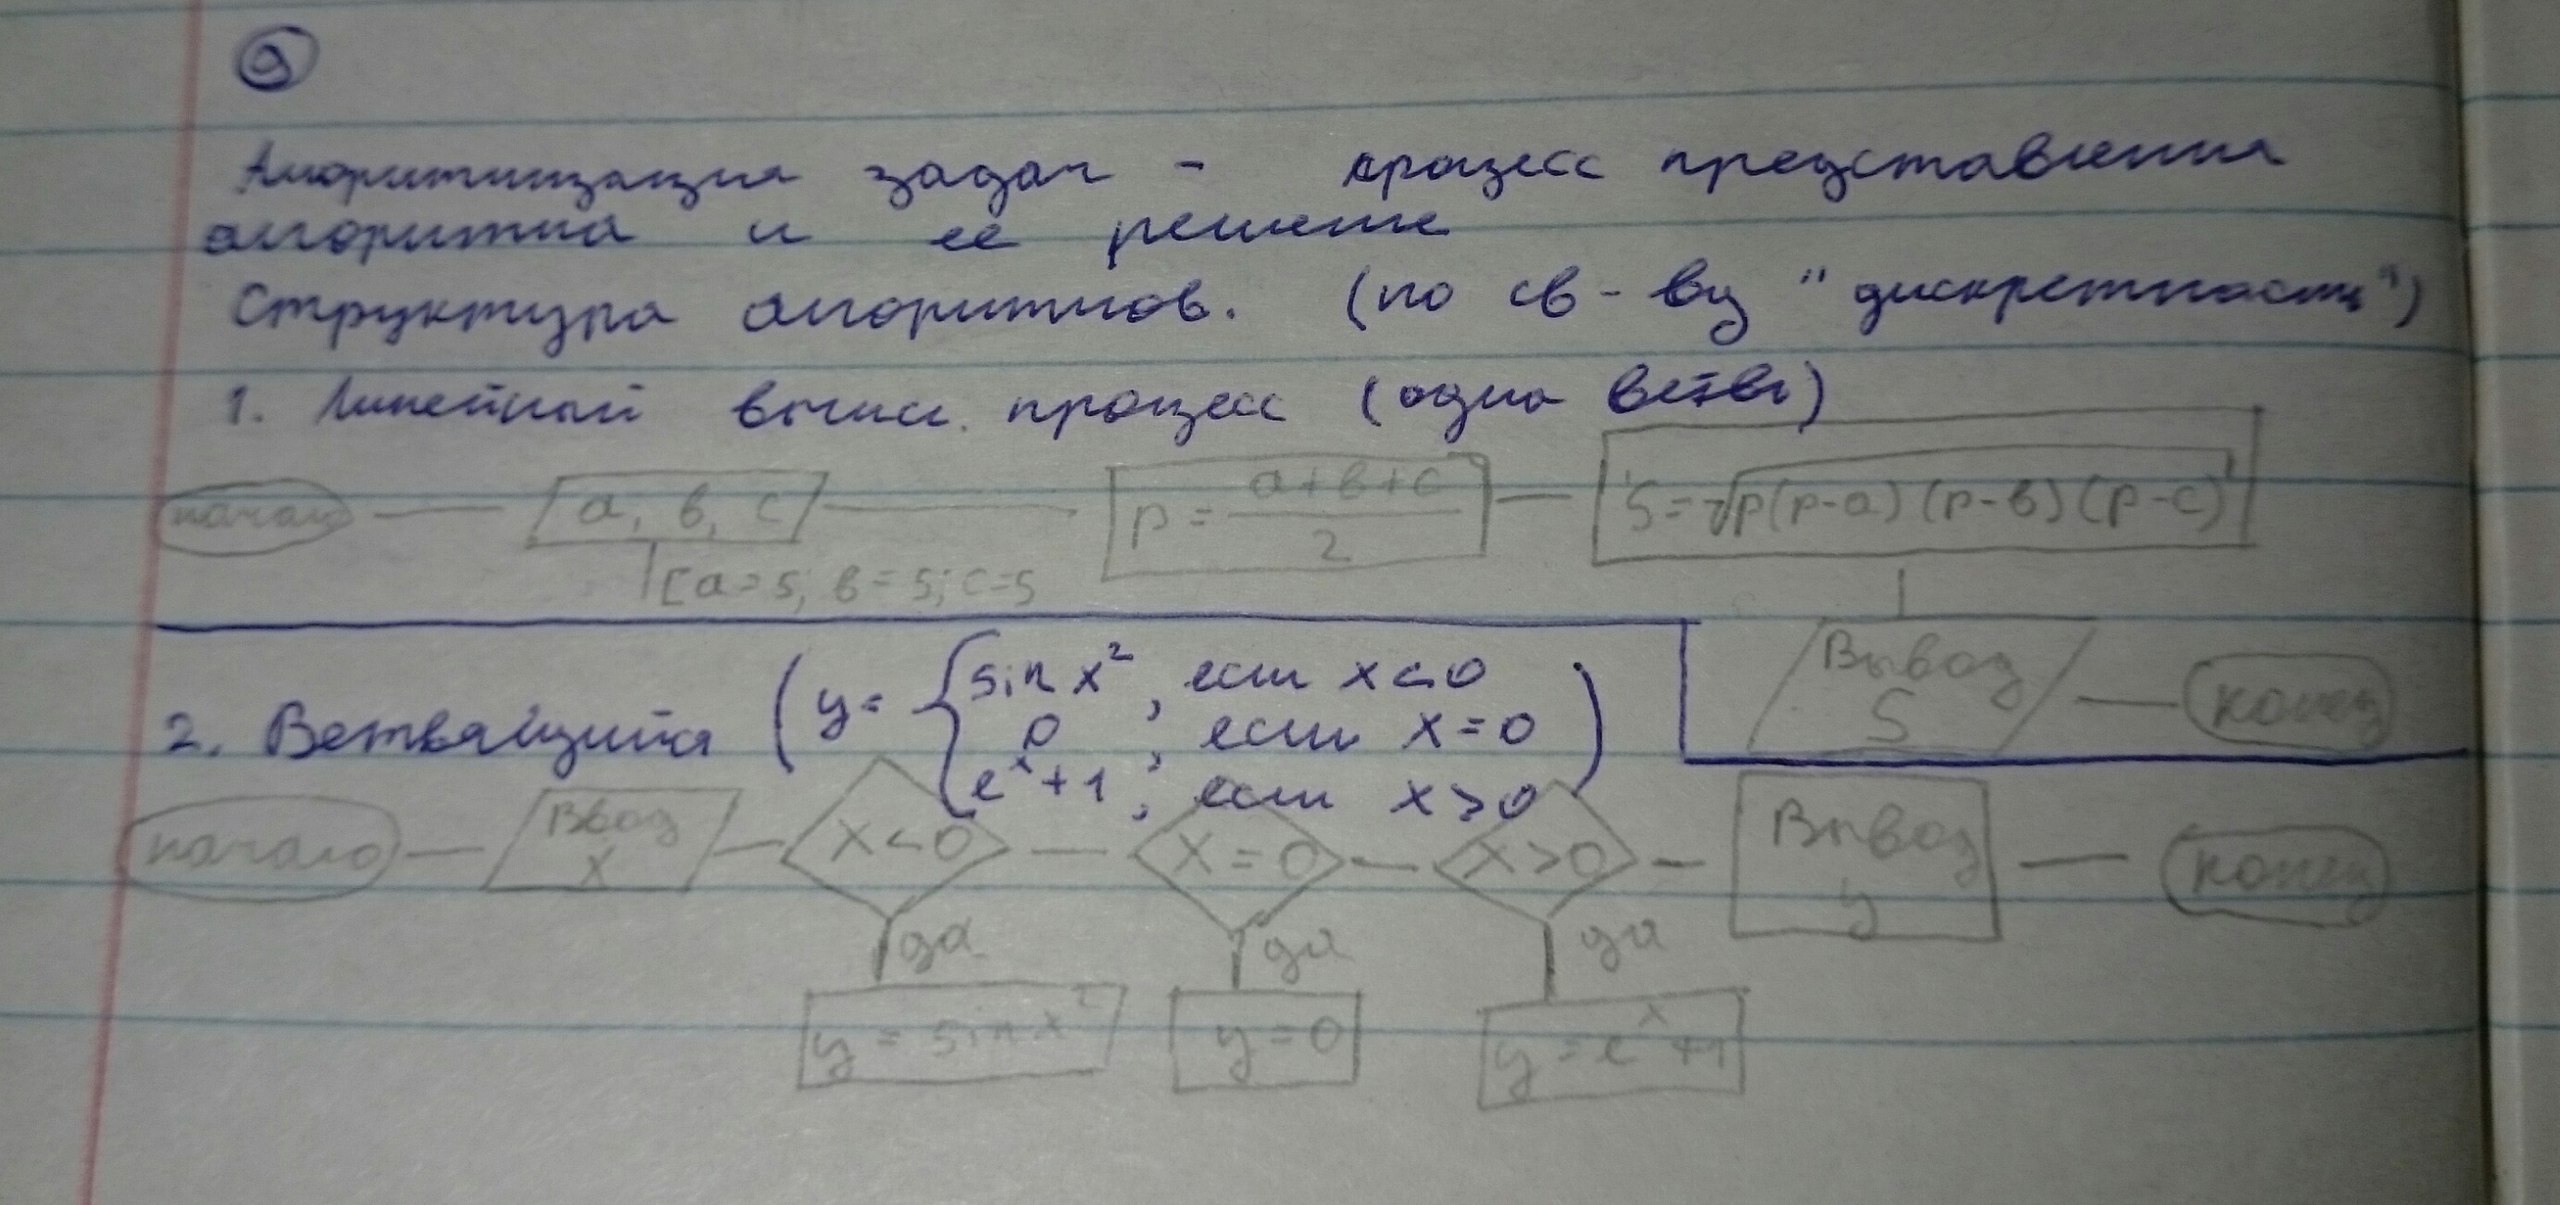 Алгоритмизация задач - процесс представления
алгоритма и ее решение
Структура алгоритмов. (по св-ву "дискретность")
1. Линейный вычисл. процесс (одна ветвь)
начало a, в, c p = a+в+c / 2 S = √p(p-a)(p-в)(p-c)
[a=5; в=5; c=5
Вывод S конец
2. Ветвящийся (y = { sin x², если x<0
0, если x=0
eˣ+1, если x>0)
начало Ввод x x<0 x=0 x>0 Вывод y конец
да да да
y = sin x² y=0 y=eˣ+1